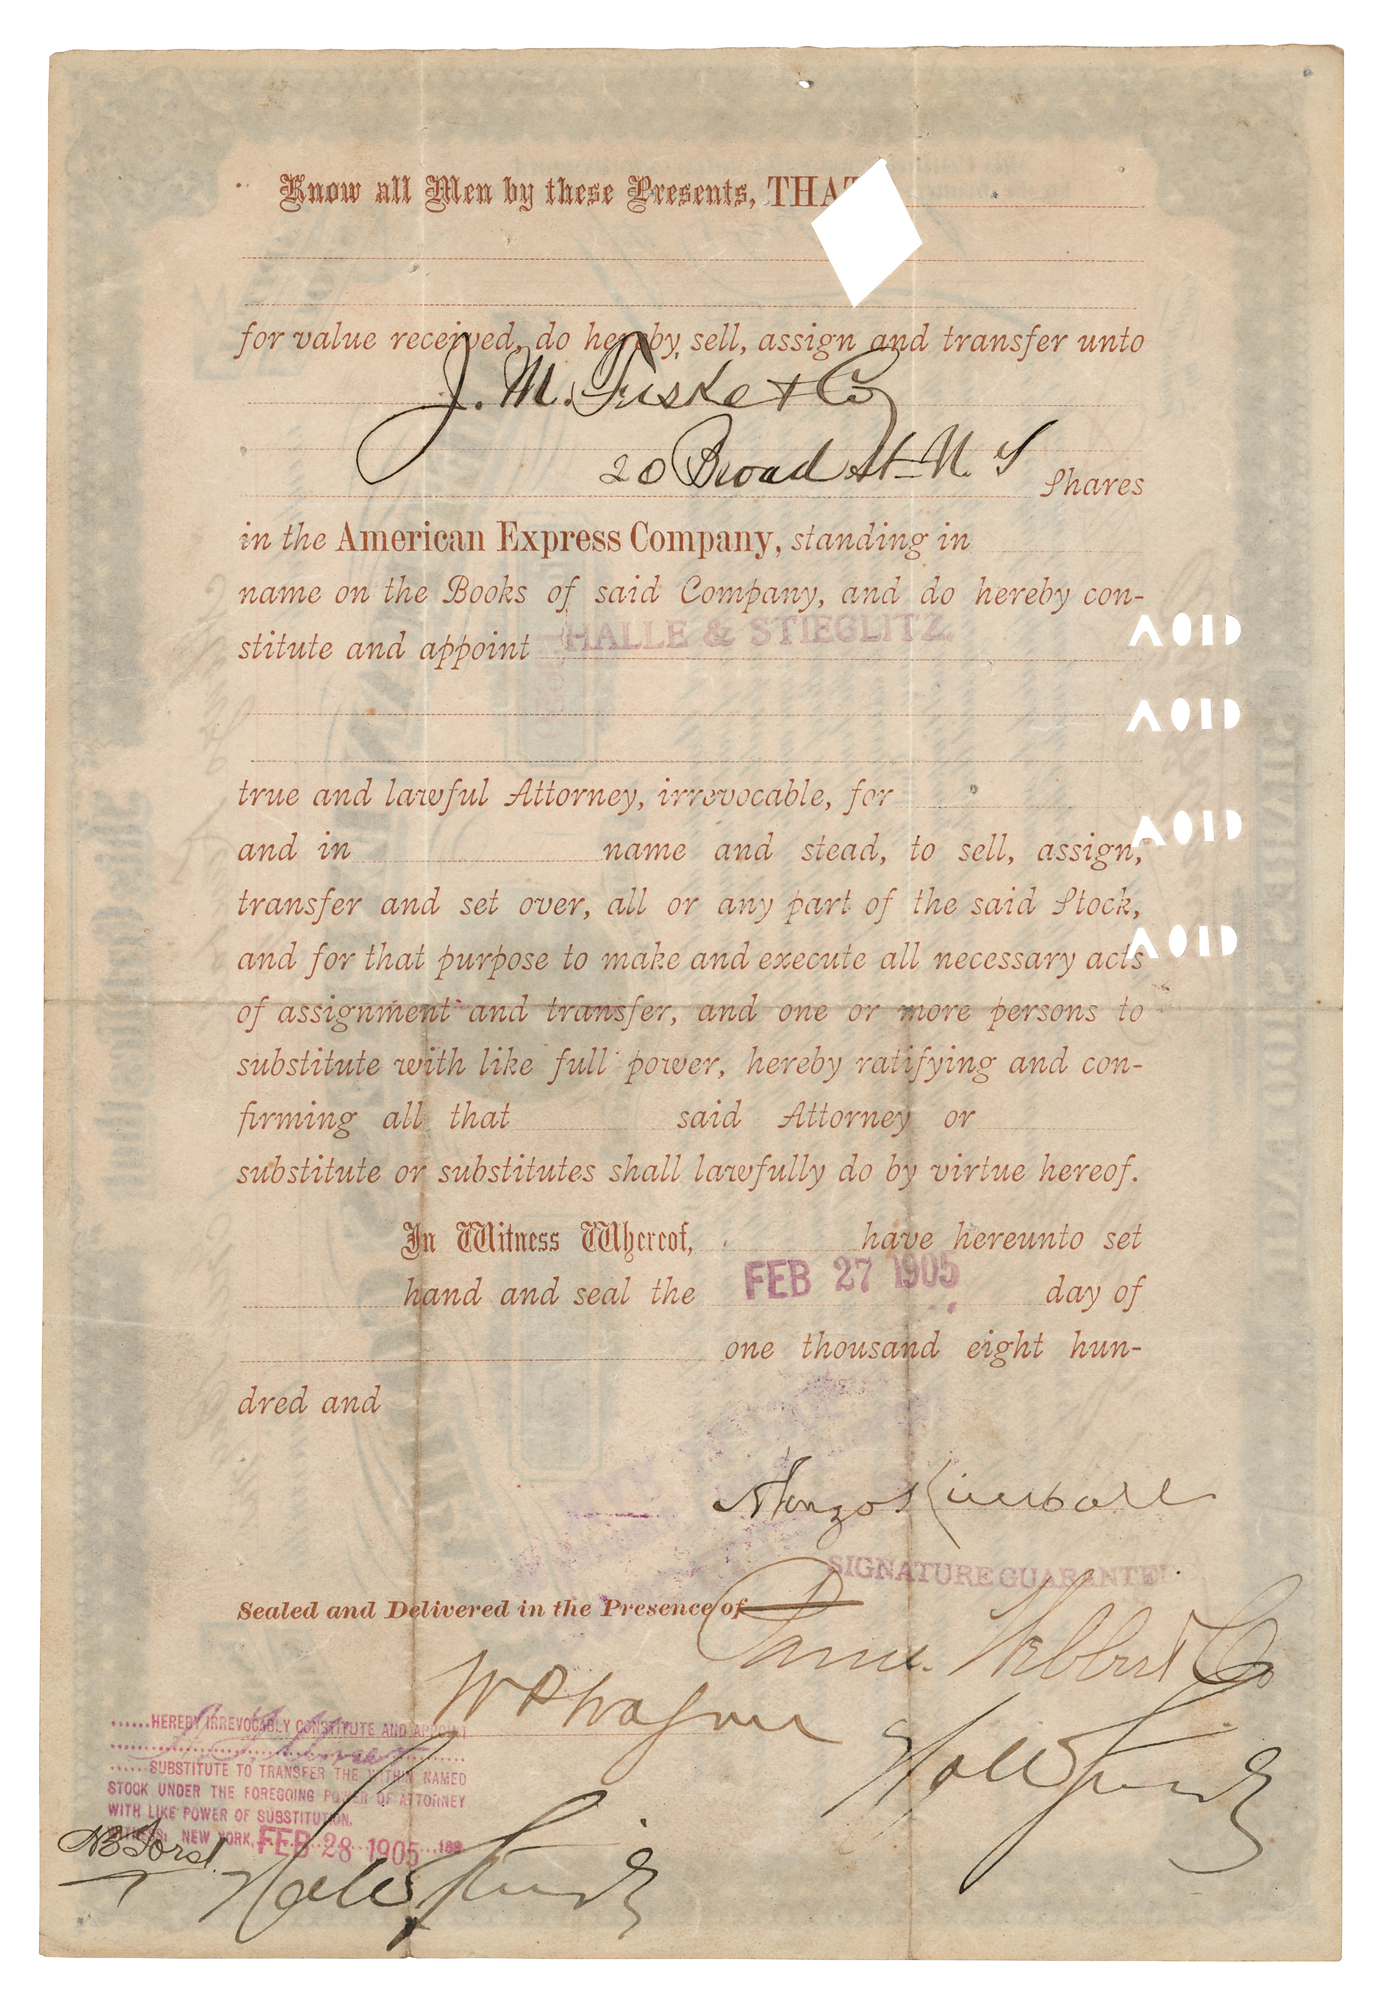 Know all Men by these Presents, THAT
for value received, do hereby sell, assign and transfer unto
J. M. Fiske & Co
20 Broad St. N. Y Shares
in the American Express Company, standing in
name on the Books of said Company, and do hereby con-
stitute and appoint HALLE & STIEGLITZ.
VOID
VOID
true and lawful Attorney, irrevocable, for
VOID
and in name and stead, to sell, assign,
transfer and set over, all or any part of the said Stock,
VOID
and for that purpose to make and execute all necessary acts
of assignment and transfer, and one or more persons to
substitute with like full power, hereby ratifying and con-
firming all that said Attorney or
substitute or substitutes shall lawfully do by virtue hereof.
In Witness Whereof, have hereunto set
hand and seal the FEB 27 1905 day of
one thousand eight hun-
dred and
Alonzo Kimball
SIGNATURE GUARANTEED
Sealed and Delivered in the Presence of
W P Wagner
Halle & Stieglitz
......HEREBY IRREVOCABLY CONSTITUTE AND APPOINT
......SUBSTITUTE TO TRANSFER THE WITHIN NAMED
STOCK UNDER THE FOREGOING POWER OF ATTORNEY
WITH LIKE POWER OF SUBSTITUTION.
WITNESS: NEW YORK, FEB 28 1905 189
Halle & Stieglitz